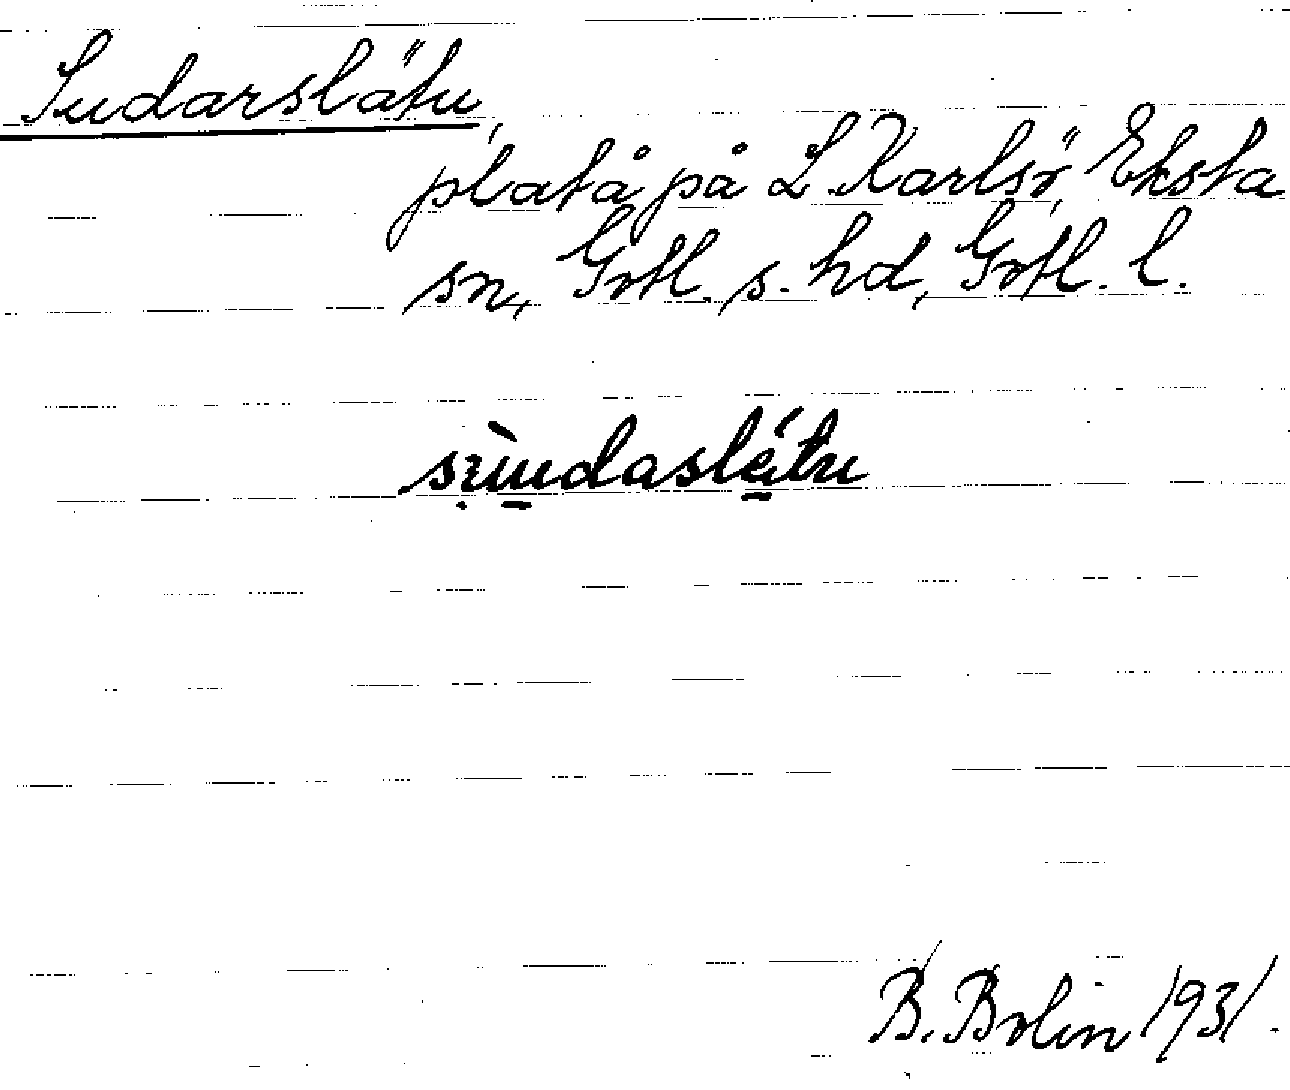 Sudarslätu,
platå på L. Karlsö, Eksta
sn, Gotl. s. hd, Gotl. l.
B. Bolin 1931.